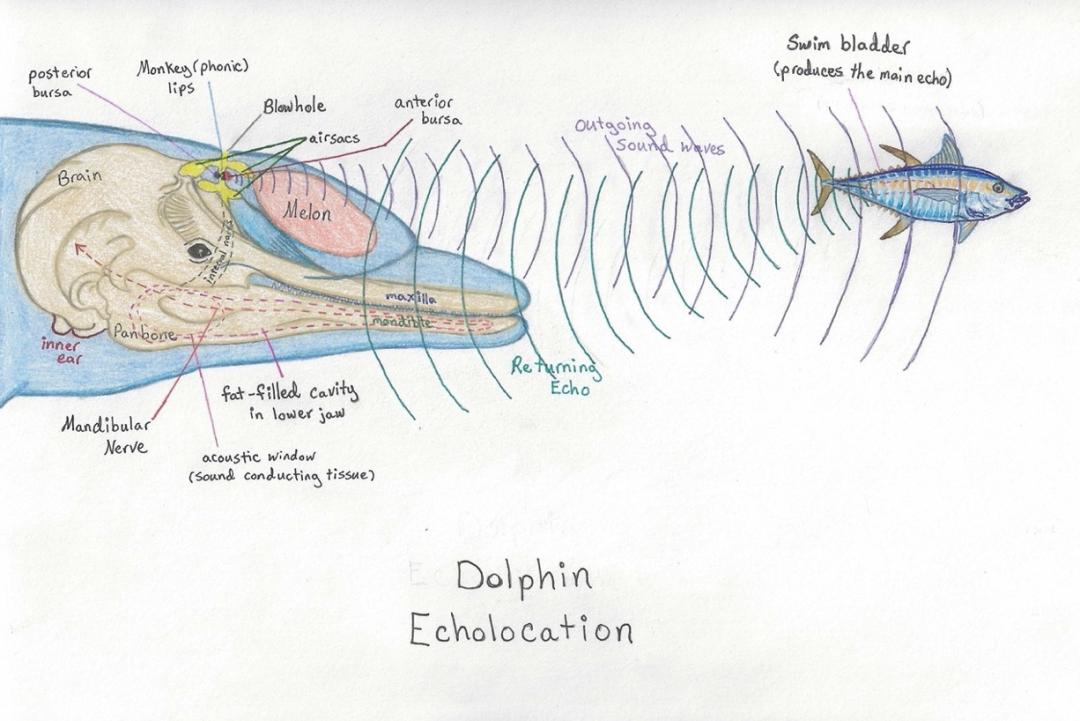 Swim bladder
(produces the main echo)
posterior
bursa
Monkey(phonic)
lips
Blowhole
airsacs
anterior
bursa
Outgoing
Sound waves
Brain
Melon
internal nares
maxilla
mandible
Panbone
inner
ear
Returning
Echo
fat-filled cavity
in lower jaw
Mandibular
Nerve
acoustic window
(sound conducting tissue)
Dolphin
Echolocation